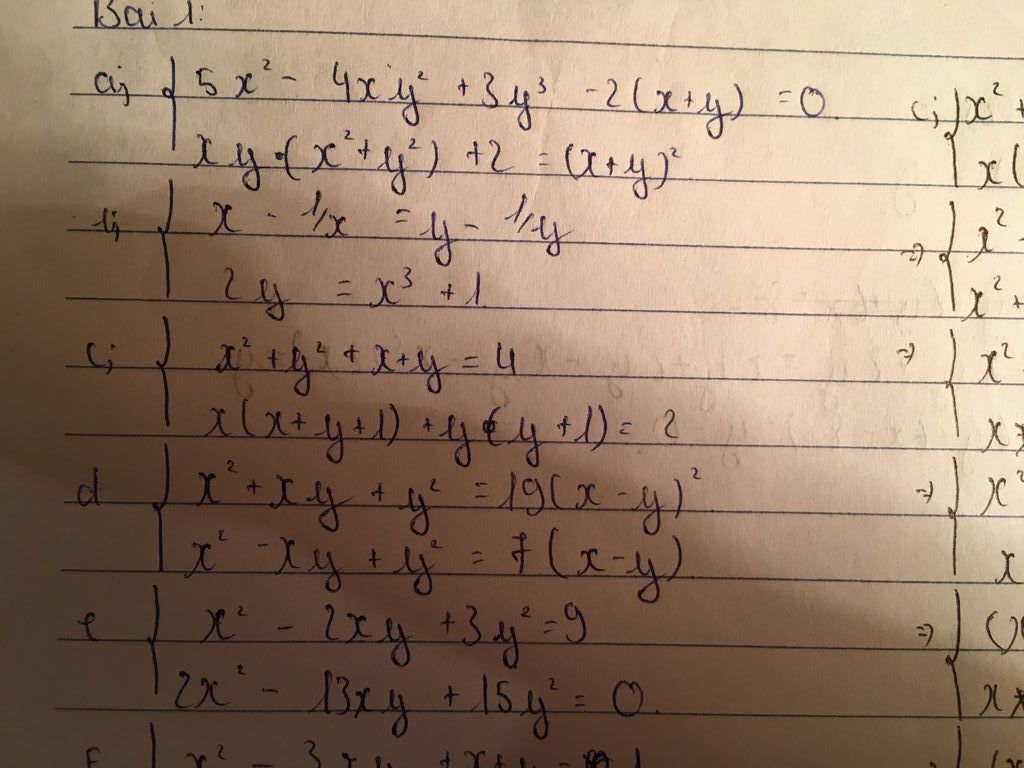 Bài 1:
a, { 5x² - 4xy² + 3y³ - 2(x+y) = 0
xy(x²+y²) + 2 = (x+y)²
b, { x - 1/x = y - 1/y
2y = x³ + 1
c, { x² + y² + x + y = 4
x(x+y+1) + y(y+1) = 2
d { x² + xy + y² = 19(x-y)²
x² - xy + y² = 7(x-y)
e { x² - 2xy + 3y² = 9
2x² - 13xy + 15y² = 0.
f { x² - 3xy + x+y
c, { x² +
x(
=> { x² -
x² +
=> { x²
x
=> { x²
x
=> {
x